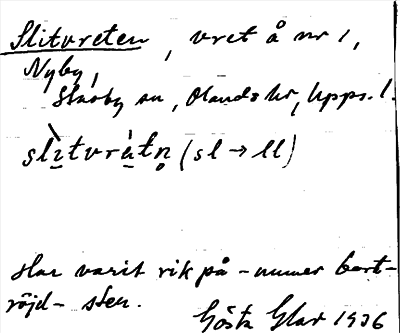 Slitvreten, vret å nr 1,
Nyby,
Skäfby sn, Olands hd, Upps. l.
slìtvrètn̥ (sl → ll)
Har varit rik på – numer bort-
röjd – sten.
Gösta Glas 1936